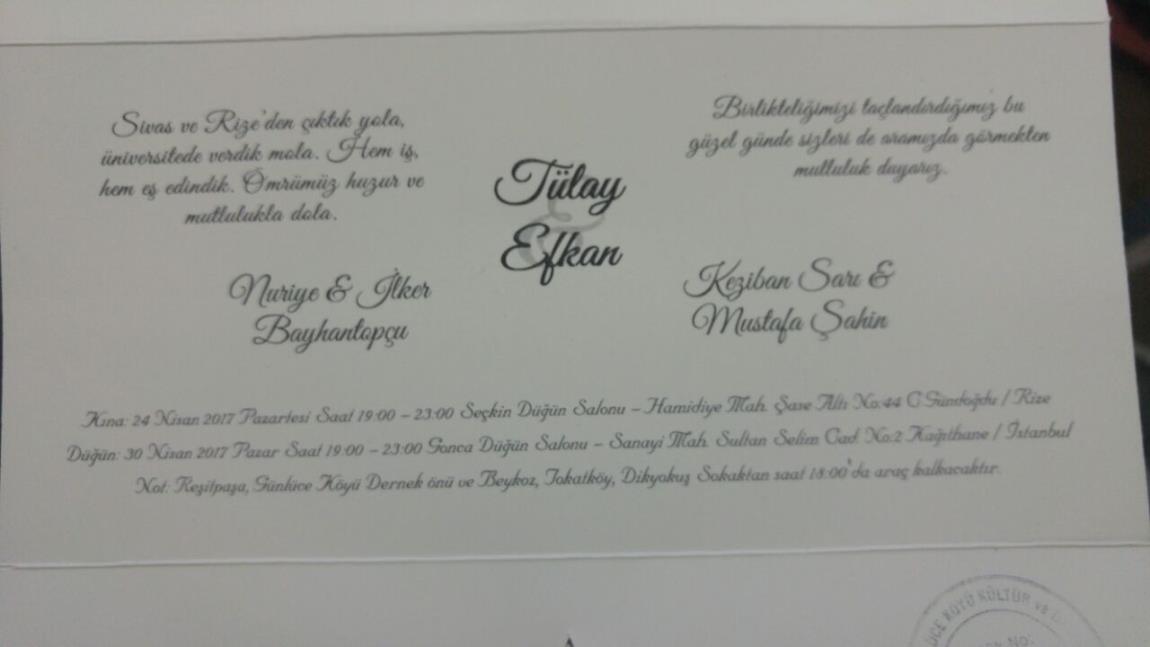 Sivas ve Rize'den çıktık yola,
üniversitede verdik mola. Hem iş,
hem eş edindik. Ömrümüz huzur ve
mutlulukla dola.
Nuriye & İlker
Bayhantopçu
Tülay
&
Efkan
Birlikteliğimizi taçlandırdığımız bu
güzel günde sizleri de aramızda görmekten
mutluluk duyarız.
Keziban Sarı &
Mustafa Şahin
Kına: 24 Nisan 2017 Pazartesi Saat 19:00 – 23:00 Seçkin Düğün Salonu – Hamidiye Mah. Şase Altı No:44 C Gündoğdu / Rize
Düğün: 30 Nisan 2017 Pazar Saat 19:00 – 23:00 Gonca Düğün Salonu – Sanayi Mah. Sultan Selim Cad. No:2 Kağıthane / İstanbul
Not: Reşitpaşa, Günlüce Köyü Dernek önü ve Beykoz, Tokatköy, Dikyokuş Sokaktan saat 18:00'da araç kalkacaktır.
KÖYÜ KÜLTÜR ve
No: